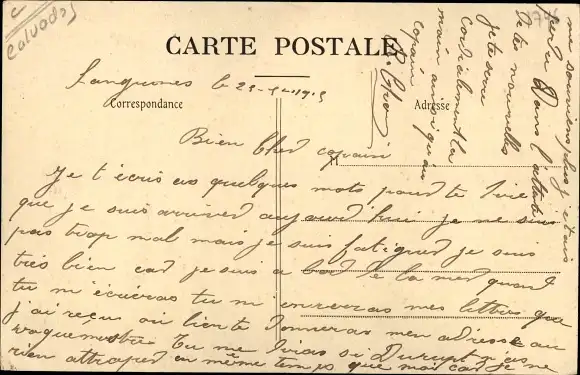 Calvados
CARTE POSTALE
Correspondance
Adresse
M
Langrunes le 23- 1915
Bien Cher copain
Je t'écris ces quelques mots pour te dire
que je suis arriver aujourd'hui je ne suis
pas trop mal mais je suis fatiguer je suis
très bien car je suis a bord de la mer quand
tu m'écriras tu m'enverras mes lettres que
j'ai reçus donneras mon adresse au
vaguemestre Tu me diras si Durupt n'as
rien attraper en même temps que moi car je ne
me souviens plus j'étais
Dans l'attente
de tes nouvelles
je te serre
cordialement la
main ainsi qu'au
copain